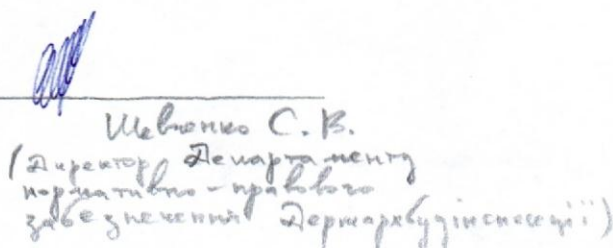 Шевченко С. В.
(Директор Департаменту
нормативно-правового
забезпечення Держархбудінспекції)